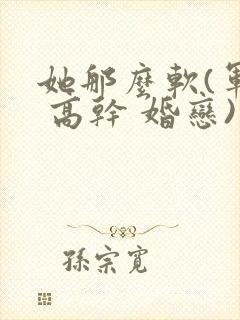 她那麼軟(軍
高幹 婚戀)
孫宗寬